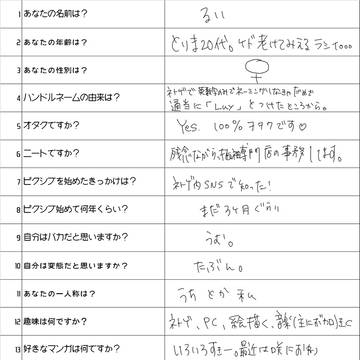 1 あなたの名前は？ るい
2 あなたの年齢は？ とりま20代。ケド老けてみえるラシイ。。。
3 あなたの性別は？ ♀
4 ハンドルネームの由来は？ ネトゲで
適当に「Luy」とつけたところから。
5 オタクですか？ Yes. 100%ヲタクです♡
6 ニートですか？ 残念ながら、専門店の事務してます。
7 ピクシブを始めたきっかけは？ ネトゲ内SNSで知った！
8 ピクシブ始めて何年くらい？ まだ3ヶ月ぐらい
9 自分はバカだと思いますか？ うむ。
10 自分は変態だと思いますか？ たぶん。
11 あなたの一人称は？ うち とか 私
12 趣味は何ですか？ ネトゲ、PC、絵描く、音楽(主にボカロ)とか
13 好きなマンガは何てすか？ いろいろすきー。最近は